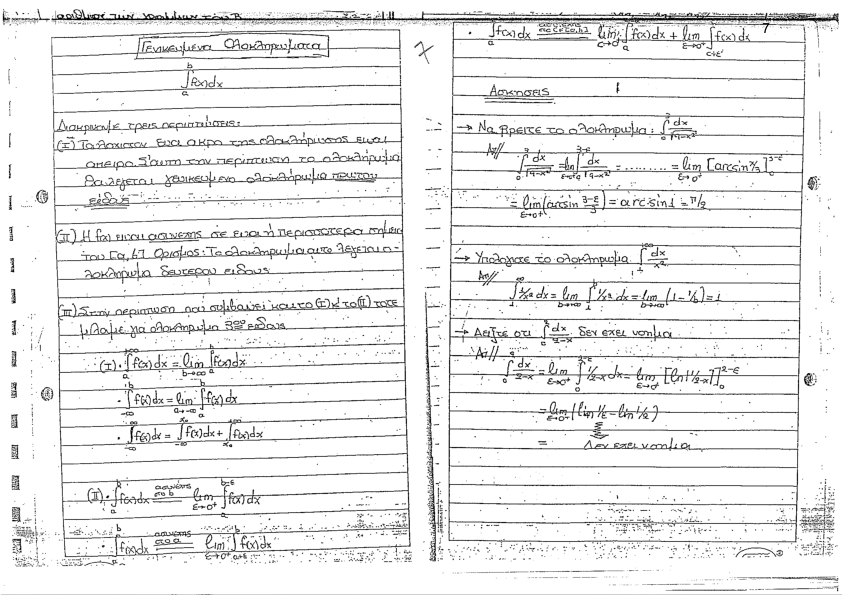 αριθμος των
Γενικευμενα Ολοκληρωματα
∫_a^b f(x)dx
Διακρινουμε τρεις περιπτωσεις:
(I) Τουλαχιστον ενα ακρο της ολοκληρωσης ειναι
απειρο. Σ'αυτη την περιπτωση το ολοκληρωμα
θα λεγεται γενικευμενο ολοκληρωμα πρωτου
ειδους
(II) Η f(x) ειναι ασυνεχης σε ενα ή περισσοτερα σημεια
του [a,b] Ορισμος: Το ολοκληρωμα αυτο λεγεται ο-
λοκληρωμα δευτερου ειδους
(III) Στην περιπτωση που συμβαινει και το (I) κ το (II) τοτε
μιλαμε για ολοκληρωμα 3ου ειδους
(I) · ∫_a^{+∞} f(x)dx = lim_{b→∞} ∫_a^b f(x)dx
· ∫_{-∞}^b f(x)dx = lim_{a→-∞} ∫_a^b f(x)dx
· ∫_{-∞}^{+∞} f(x)dx = ∫_{-∞}^{x₀} f(x)dx + ∫_{x₀}^{+∞} f(x)dx
(II) · ∫_a^b f(x)dx =(ασυνεχης στο b) lim_{ε→0⁺} ∫_a^{b-ε} f(x)dx
· ∫_a^b f(x)dx =(ασυνεχης στο a) lim_{ε→0⁺} ∫_{a+ε}^b f(x)dx
7
7
· ∫_a^b f(x)dx =(ασυνεχης στο c∈(a,b)) lim_{ε→0⁺} ∫_a f(x)dx + lim_{ε→0⁺} ∫_{c+ε'} f(x)dx
Ασκησεις
→ Να βρειτε το ολοκληρωμα: ∫_0^3 dx/√(9-x²)
Απ//
∫_0^3 dx/√(9-x²) = lim_{ε→0⁺} ∫_0^{3-ε} dx/√(9-x²) = ......... = lim_{ε→0⁺} [arcsin x/3]_0^{3-ε}
= lim_{ε→0⁺} (arcsin (3-ε)/3) = arcsin1 = π/2
→ Υπολογιστε το ολοκληρωμα ∫_1^{+∞} dx/x²
Απ//
∫_1^∞ 1/x² dx = lim_{b→∞} ∫_1^b 1/x² dx = lim_{b→∞} (1-1/b) = 1
→ Δειξτε οτι ∫_0^2 dx/(2-x) δεν εχει νοημα
Απ//
∫_0^2 dx/(2-x) = lim_{ε→0⁺} ∫_0^{2-ε} 1/(2-x) dx = lim_{ε→0⁺} [ln|1/(2-x)|]_0^{2-ε}
= lim_{ε→0⁺} (ln 1/ε - ln 1/2)
= Δεν εχει νοημα